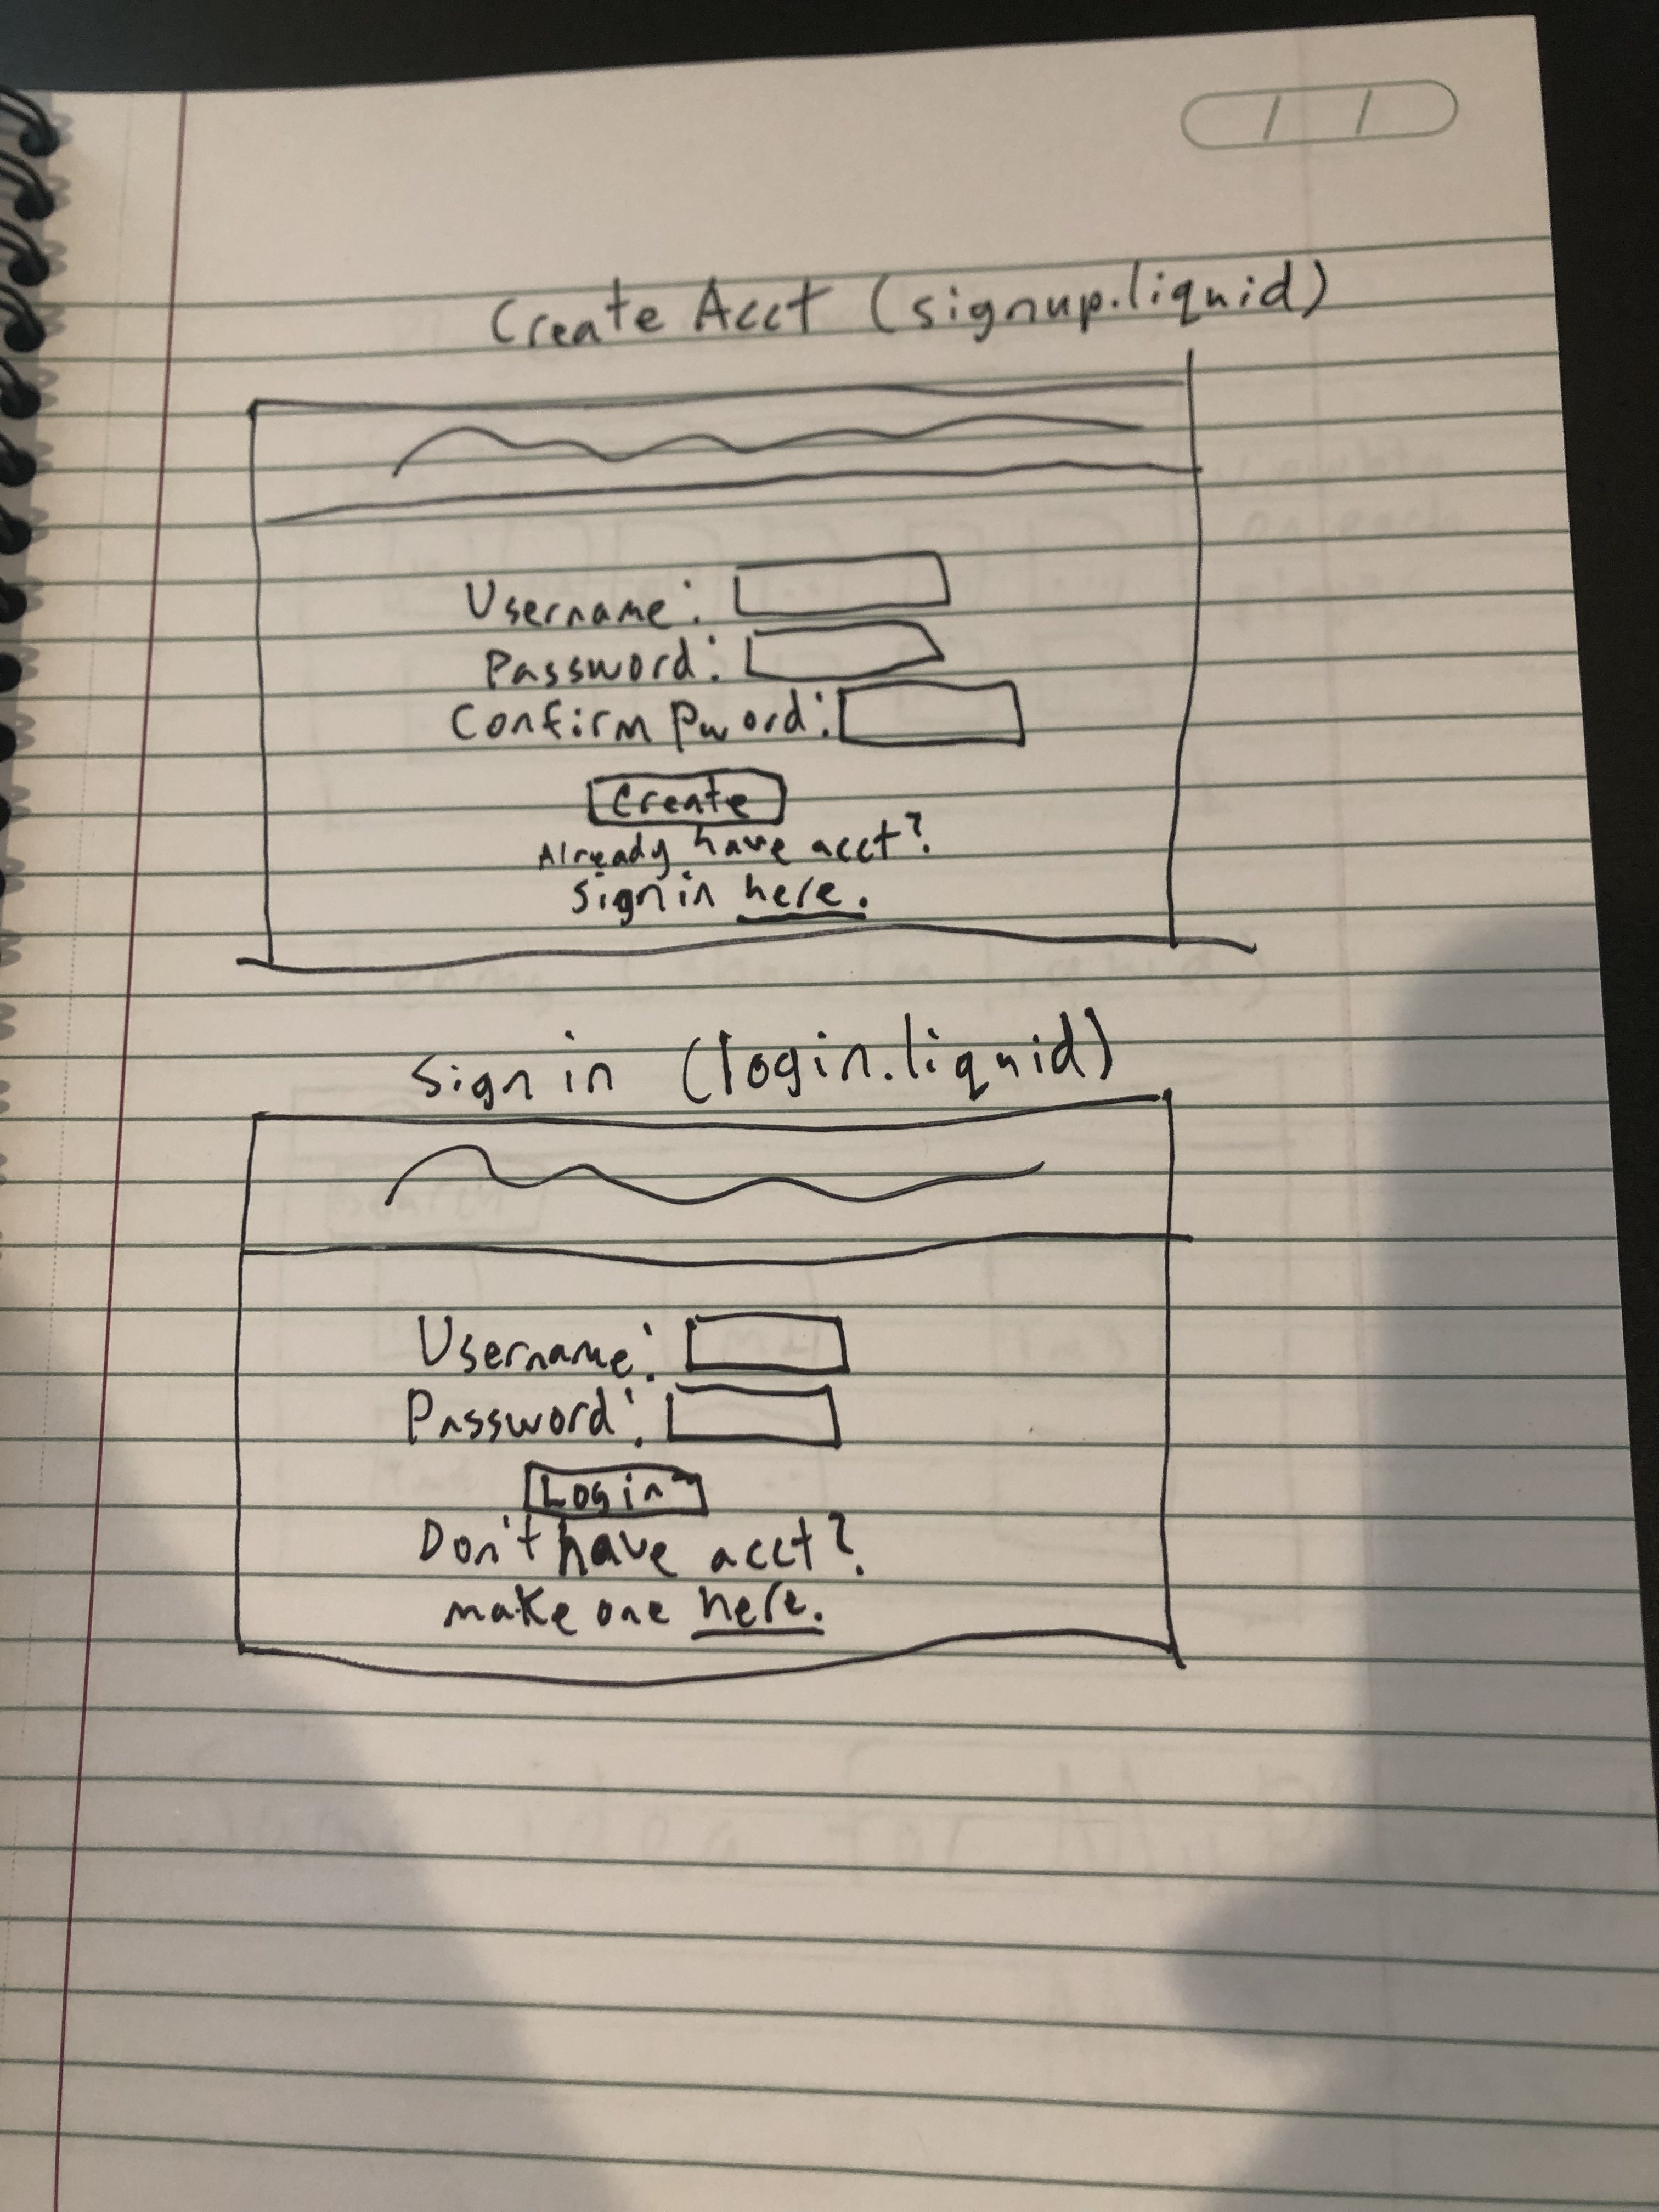 Create Acct (signup.liquid)
Username:
Password:
Confirm Pword:
Create
Already have acct?
Sign in here.
Sign in (login.liquid)
Username:
Password:
Login
Don't have acct?
make one here.